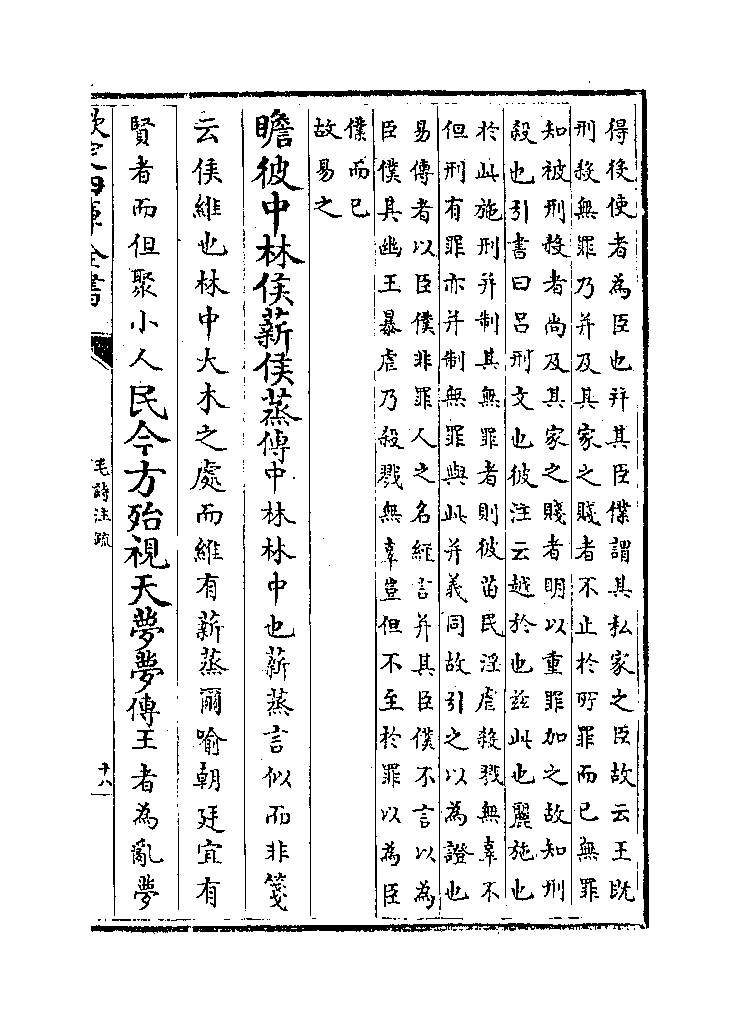 得後使者為臣也并其臣僕謂其私家之臣故云王既
刑殺無罪乃并及其家之賤者不止於所罪而已無罪
知被刑殺者尚及其家之賤者明以重罪加之故知刑
殺也引書曰吕刑文也彼注云越於也兹此也麗施也
於此施刑并制其無罪者則彼苗民淫虐殺戮無辜不
但刑有罪亦并制無罪與此并義同故引之以為證也
易傳者以臣僕非罪人之名經言并其臣僕不言以為
臣僕具幽王暴虐乃殺戮無辜豈但不至於罪以為臣
僕而已
故易之
瞻彼中林侯薪侯蒸傳中林林中也薪蒸言似而非箋
云侯維也林中大木之處而維有薪蒸爾喻朝廷宜有
賢者而但聚小人民今方殆視天夢夢傳王者為亂夢
欽定四庫全書
毛詩注疏
十八